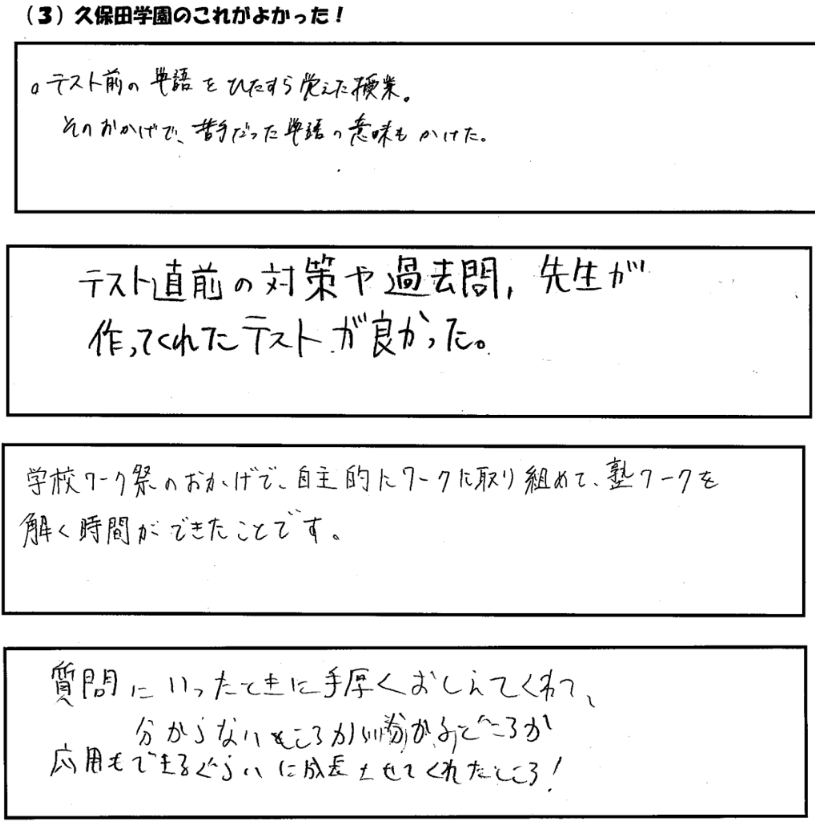 （3）久保田学園のこれがよかった！
。テスト前の単語をひたすら覚えた授業。
そのおかげで、苦手だった単語の意味もかけた。
テスト直前の対策や過去問，先生が
作ってくれたテストが良かった。
学校ワーク祭のおかげで、自主的にワークに取り組めて、塾ワークを
解く時間ができたことです。
質問にいったときに手厚くおしえてくれて、
分からないところが分かるどころか
応用もできるぐらいに成長させてくれたところ！